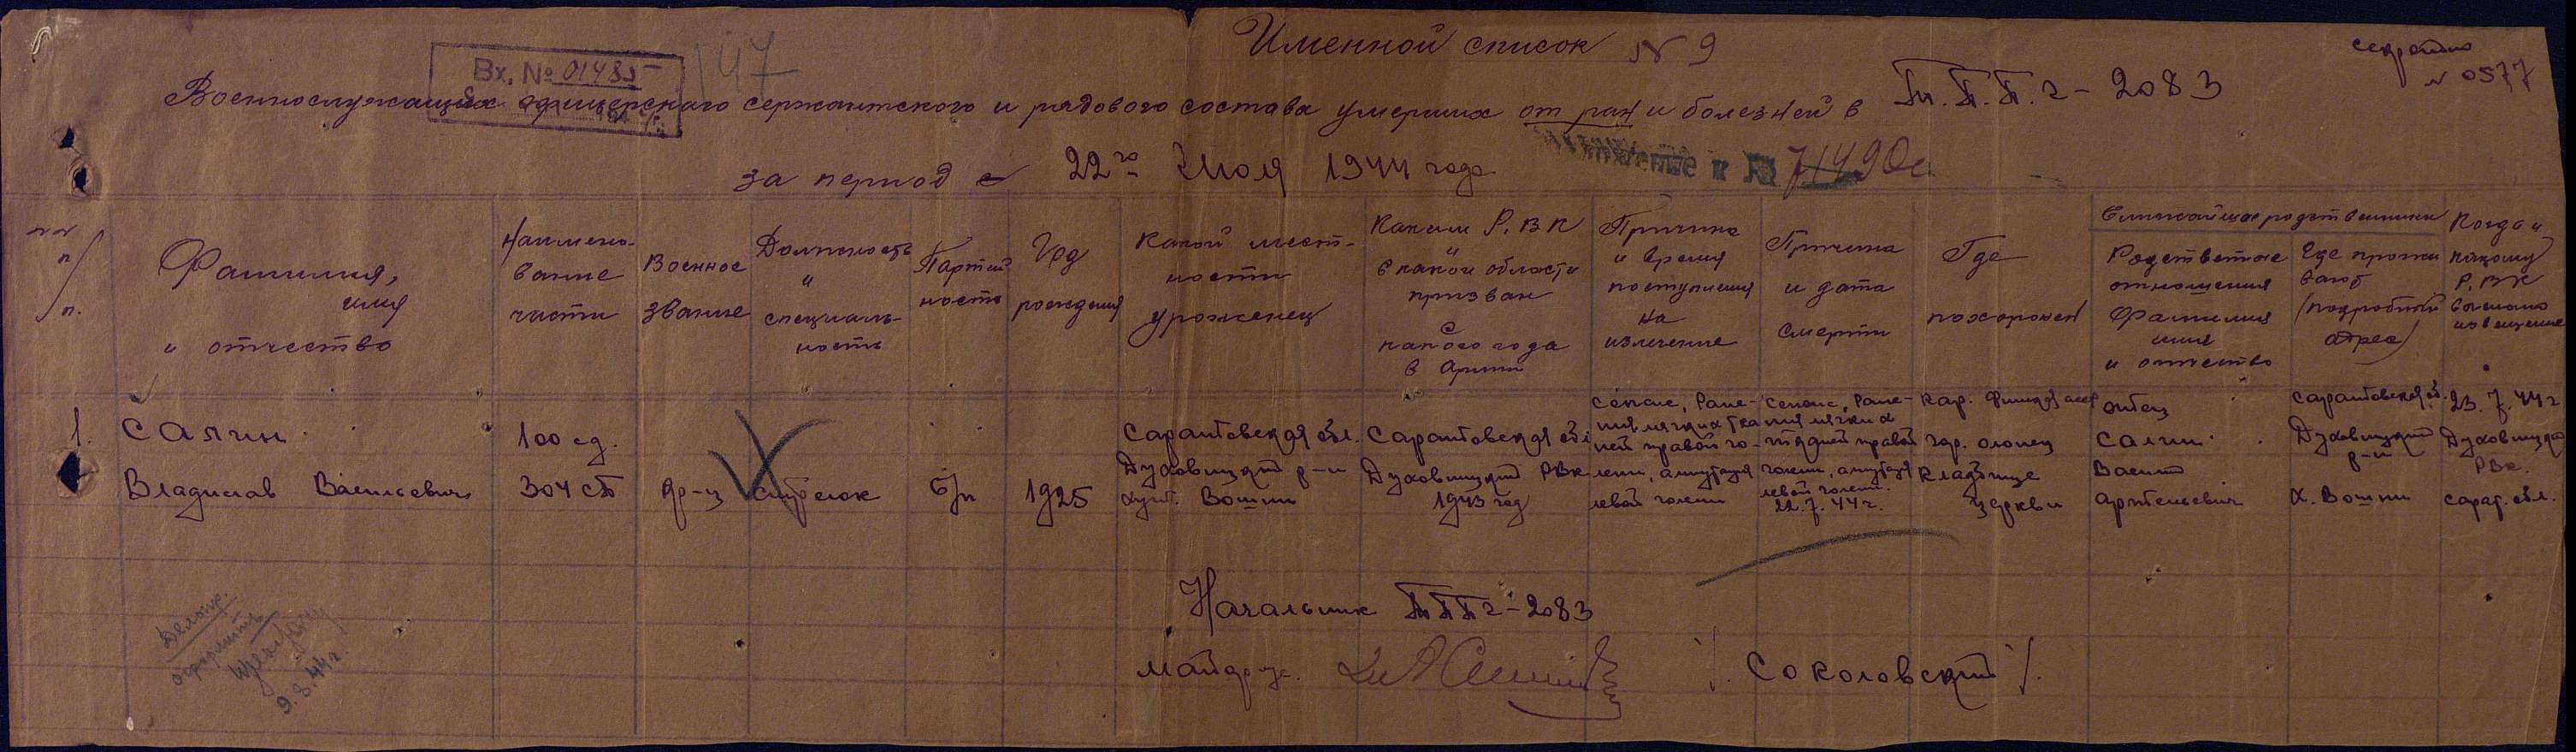 Именной список № 9
секретно
№ 0577
Вх. № 01485
147
Военнослужащих офицерского сержантского и рядового состава умерших от ран и болезней в Т.П.П.г-2083
за период с 22го Июля 1944 года.
к № 71490с
№№ п/п.
Фамилия, имя и отчество
Наименование части
Военное звание
Должность и специальность
Партийность
Год рождения
Какой местности уроженец
Каким Р.ВК и в какой области призван
С какого года в армии
Причина и время поступления на излечение
Причина и дата смерти
Где похоронен
Ближайшие родственники
Родственное отношения Фамилия имя и отчество
Где проживают (подробный адрес)
Когда и какому Р.ВК выслано извещение
1.
Салин
Владислав Васильевич
100 сд.
304 сп
кр-ц
стрелок
б/п
1925
Саратовская обл.
Духовицкий р-н
хут. Вошии
Саратовская обл
Духовицкий РВК
1943 год
Сепсис, Ране-
ния мягких тка
ней правой го-
лени, ампутация
левой голени
Сепсис, Ране-
ния мягких
тканей правой
голени, ампутация
левой голени.
22.7.44г.
Кар. Финская ссср
гор. Олонец
Кладбище
церкви
отец
Салин
Василий
Артельевич
Саратовская об.
Духовицкий
р-н
х. Вошии
23.7.44г
Духовицкий
РВК.
Сарат. обл.
Начальник ТППг-2083
майор м/с.
/. Соколовский /.
оформить
9.8.44г.